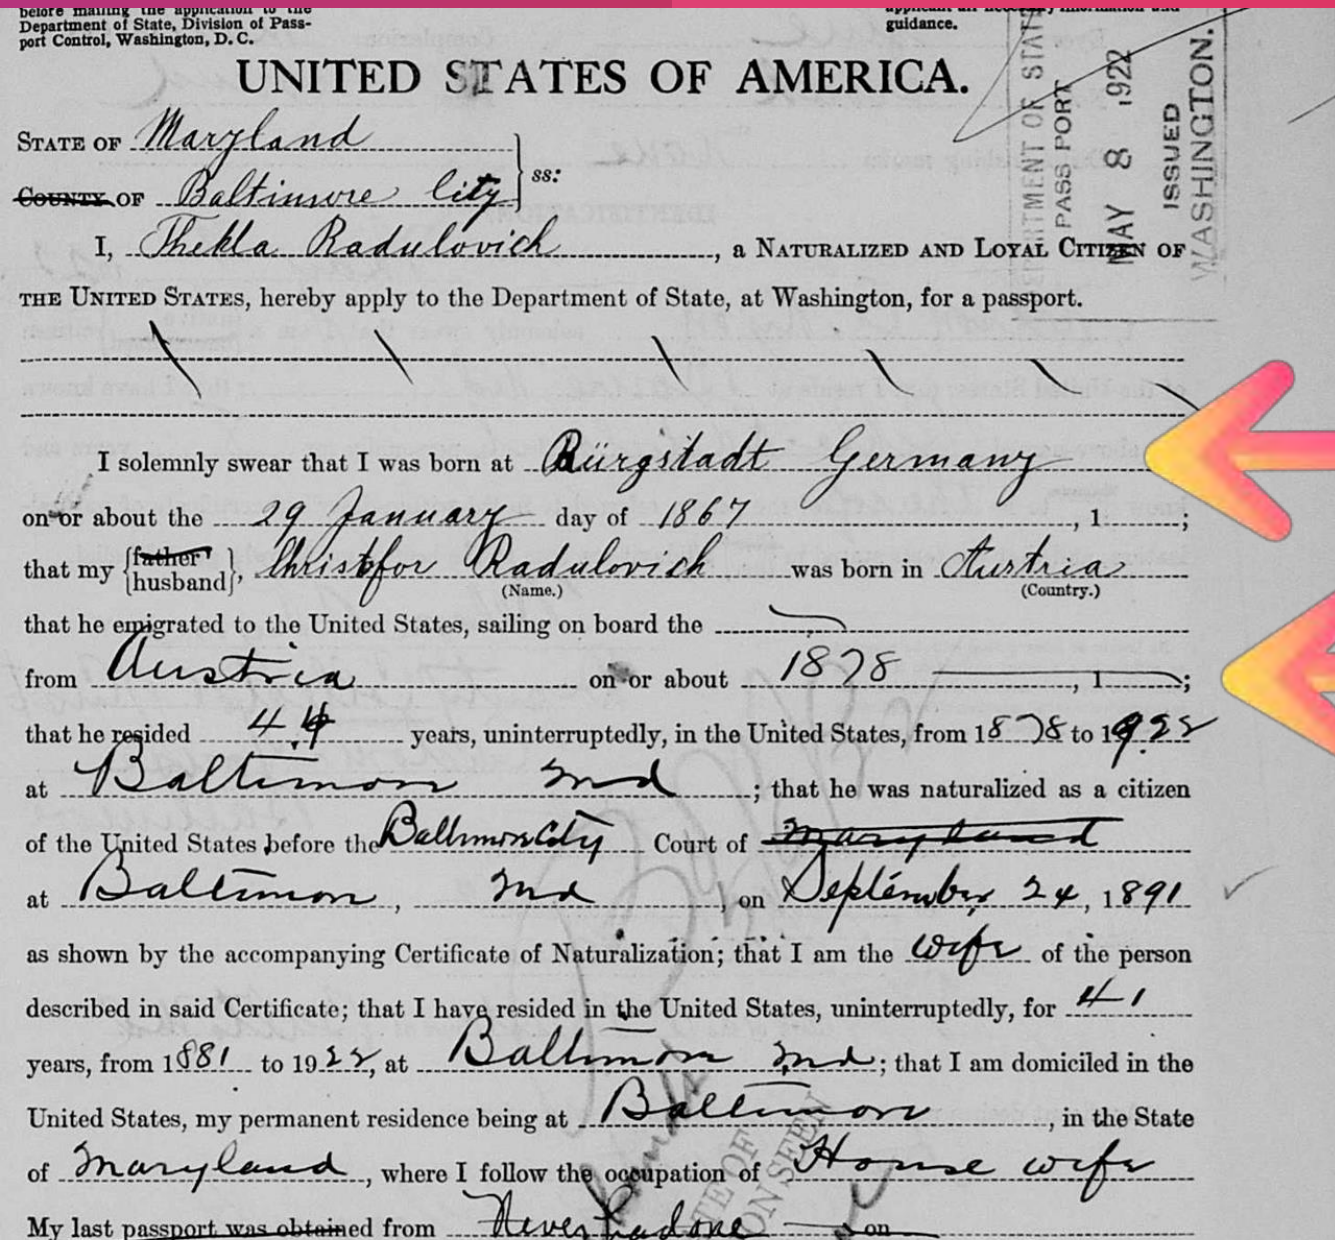 before mailing the application to the
Department of State, Division of Pass-
port Control, Washington, D. C.
guidance.
UNITED STATES OF AMERICA.
DEPARTMENT OF STATE
PASSPORT
MAY 8 1922
ISSUED
WASHINGTON.
STATE OF Maryland
COUNTY OF Baltimore City ss:
I, Thekla Radulovich, a NATURALIZED AND LOYAL CITIZEN OF
THE UNITED STATES, hereby apply to the Department of State, at Washington, for a passport.
I solemnly swear that I was born at Bürgstadt Germany
on or about the 29 January day of 1867, 1;
that my {father husband}, Christofor Radulovich was born in Austria
(Name.) (Country.)
that he emigrated to the United States, sailing on board the
from Austria on or about 1878, 1;
that he resided 44 years, uninterruptedly, in the United States, from 1878 to 1922
at Baltimore Md; that he was naturalized as a citizen
of the United States before the Baltimore City Court of Maryland
at Baltimore, Md, on September 24, 1891
as shown by the accompanying Certificate of Naturalization; that I am the wife of the person
described in said Certificate; that I have resided in the United States, uninterruptedly, for 41
years, from 1881 to 1922, at Baltimore Md; that I am domiciled in the
United States, my permanent residence being at Baltimore, in the State
of Maryland, where I follow the occupation of House wife
My last passport was obtained from Never had one on